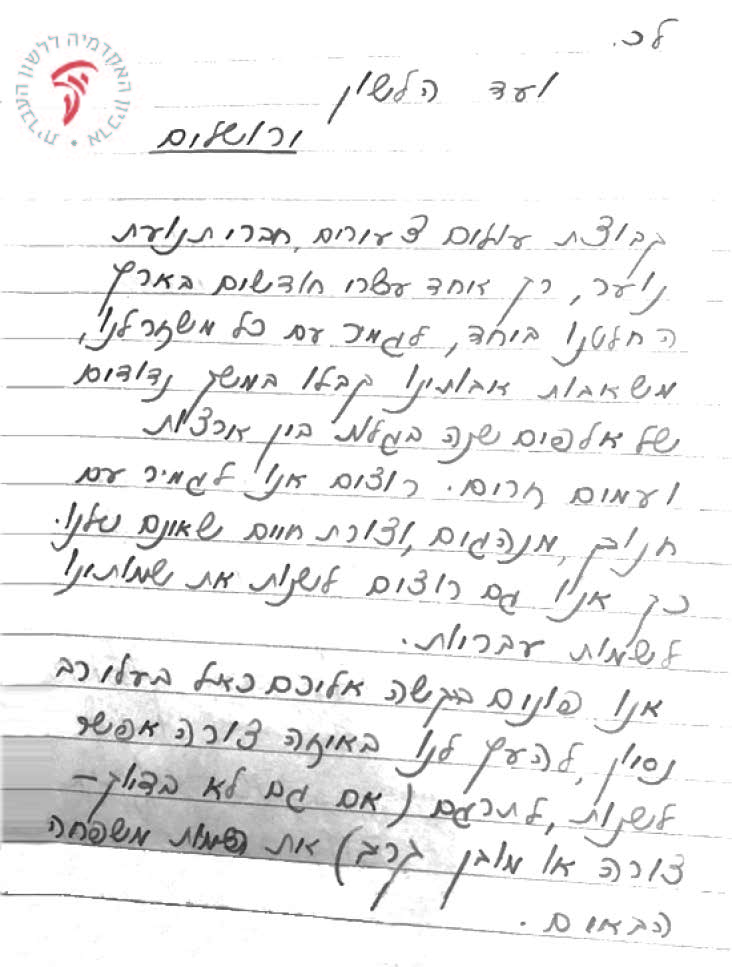 האקדמיה ללשון העברית
לכ.
ועד הלשון
ירושלים
קבוצת עולים צעורים, חברי תנועת
נוער, רק אחד עשרי חודשים בארץ
החלטנו ביחד, לגמיר עם כל
משאבות אבותינו קבלו במשך נדודים
של אלפים שנה בגלות בין ארצות
ועמים זרים. רוצים אנו לגמיר עם
חנוך, מנהגים, וצורת חיים שאינם שלנו.
כך אנו גם רוצים לשנות את שמותינו
לשמות עבריות.
אנו פונים בבקשה אליכם כאל בעלי רב
נסיון, להעץ לנו באיזה צורה אפשר
לשנות, לתרגם (אם גם לא בדיוק –
צורה או מובן קרב) את שמות משפחה
הבאים.